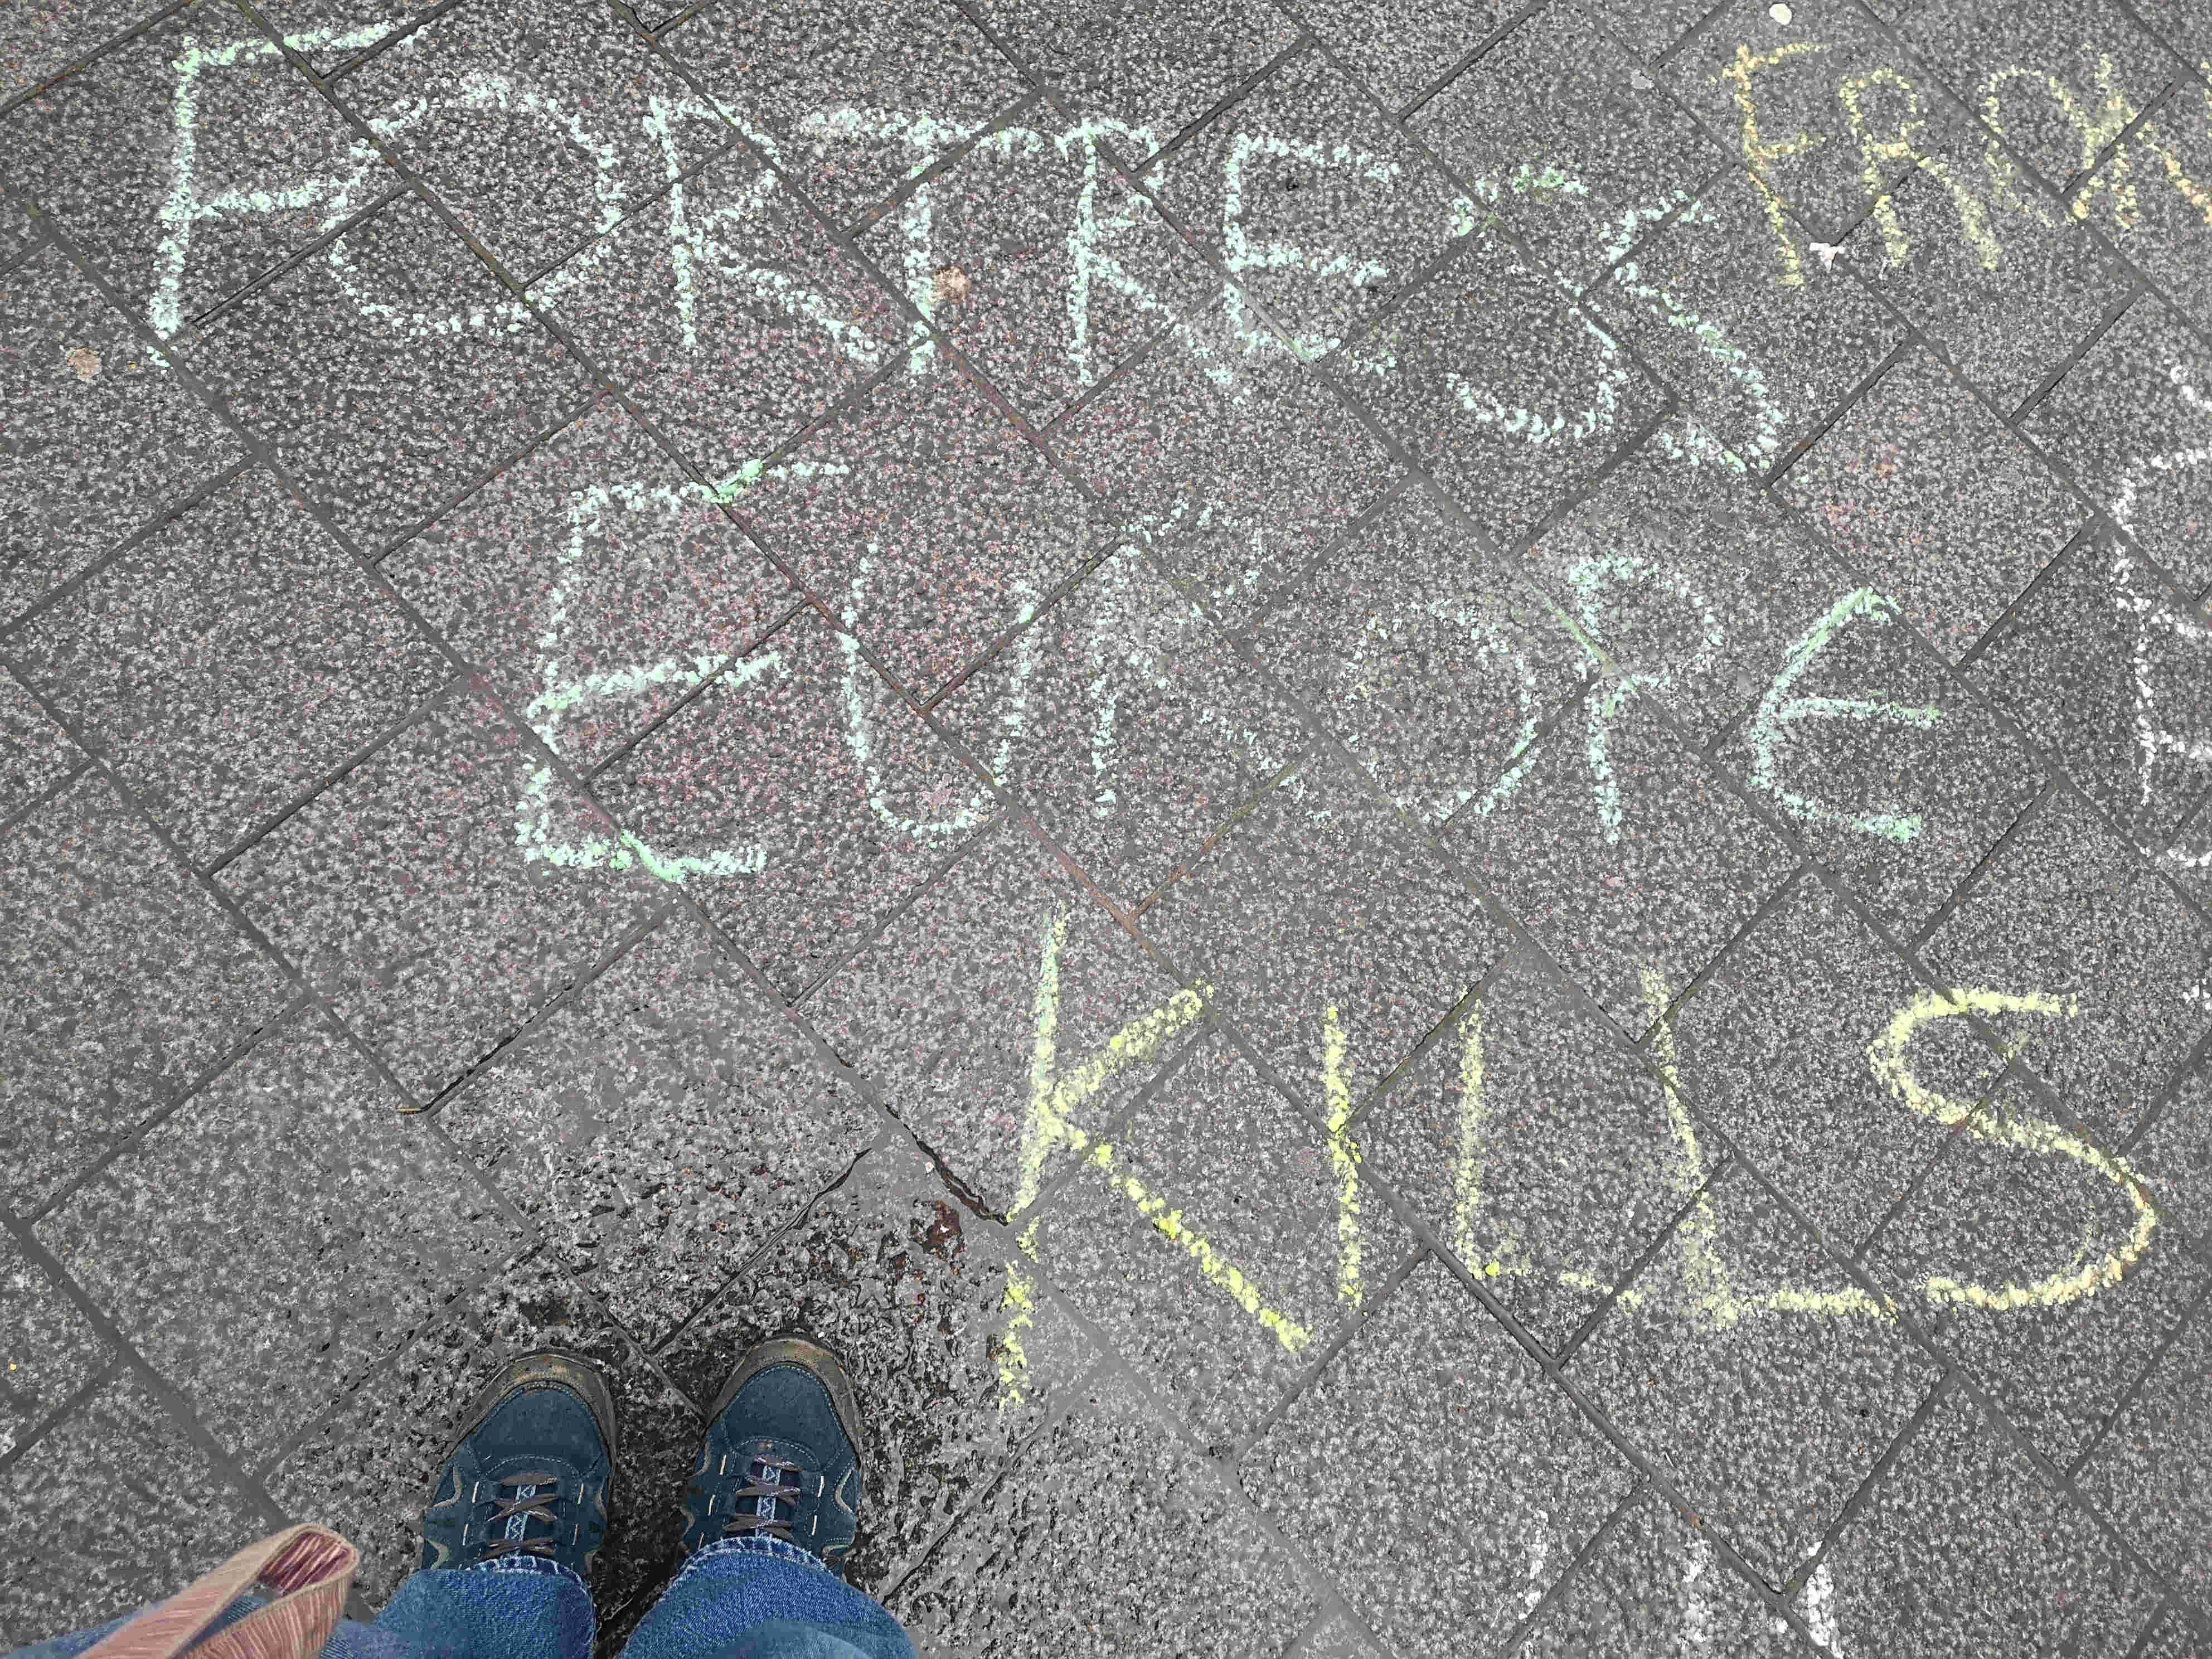 FORTRESS
EUROPE
KILLS